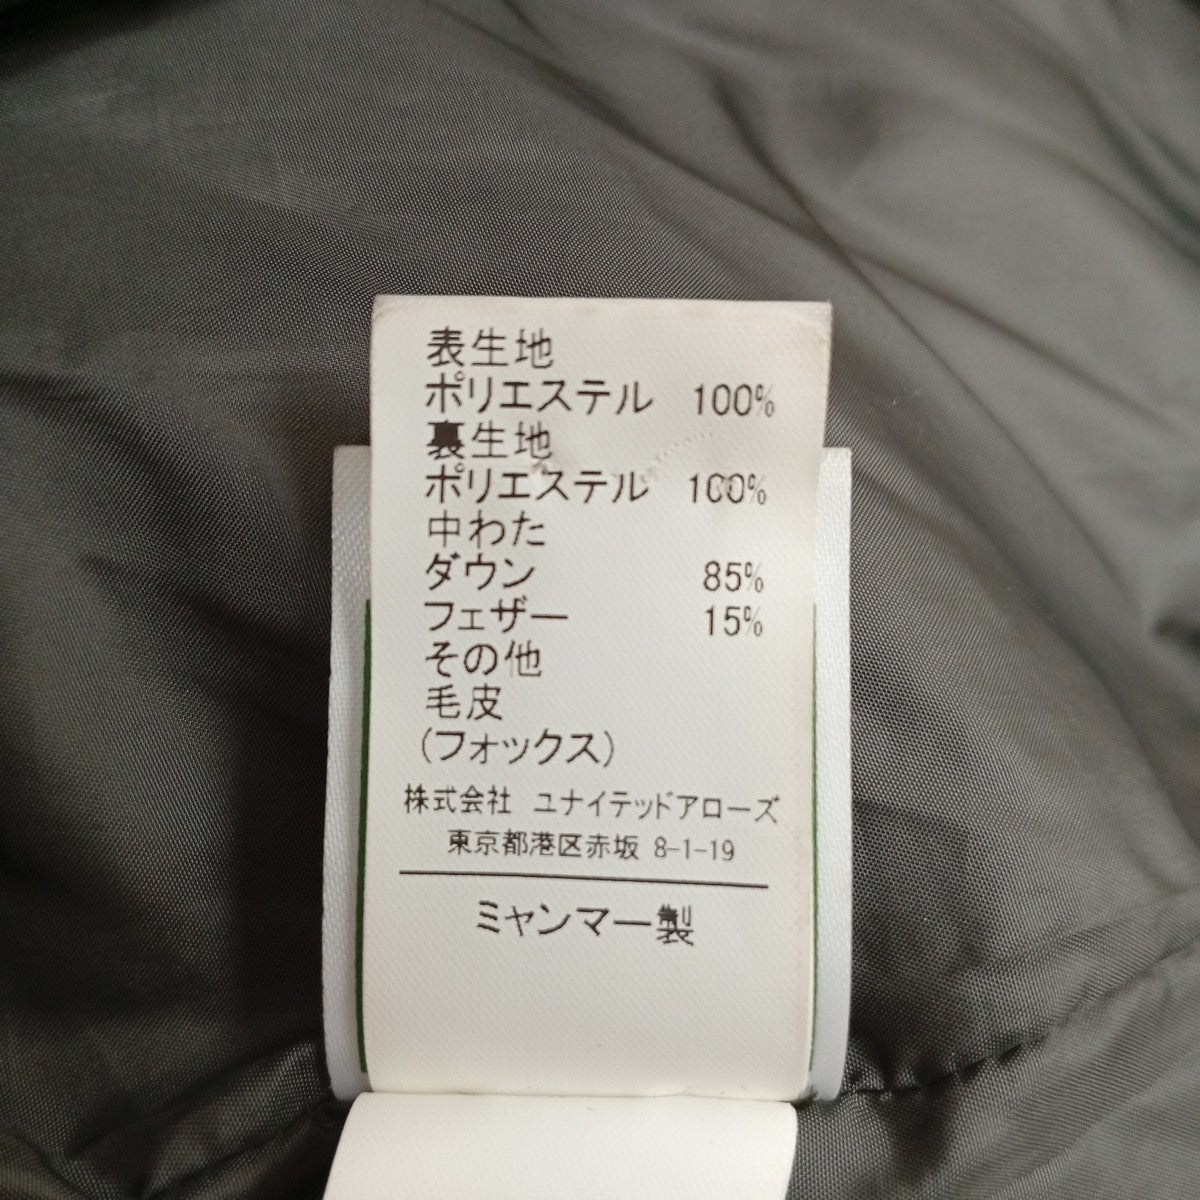 表生地
ポリエステル 100%
裏生地
ポリエステル 100%
中わた
ダウン 85%
フェザー 15%
その他
毛皮
(フォックス)
株式会社 ユナイテッドアローズ
東京都港区赤坂 8-1-19
ミャンマー製